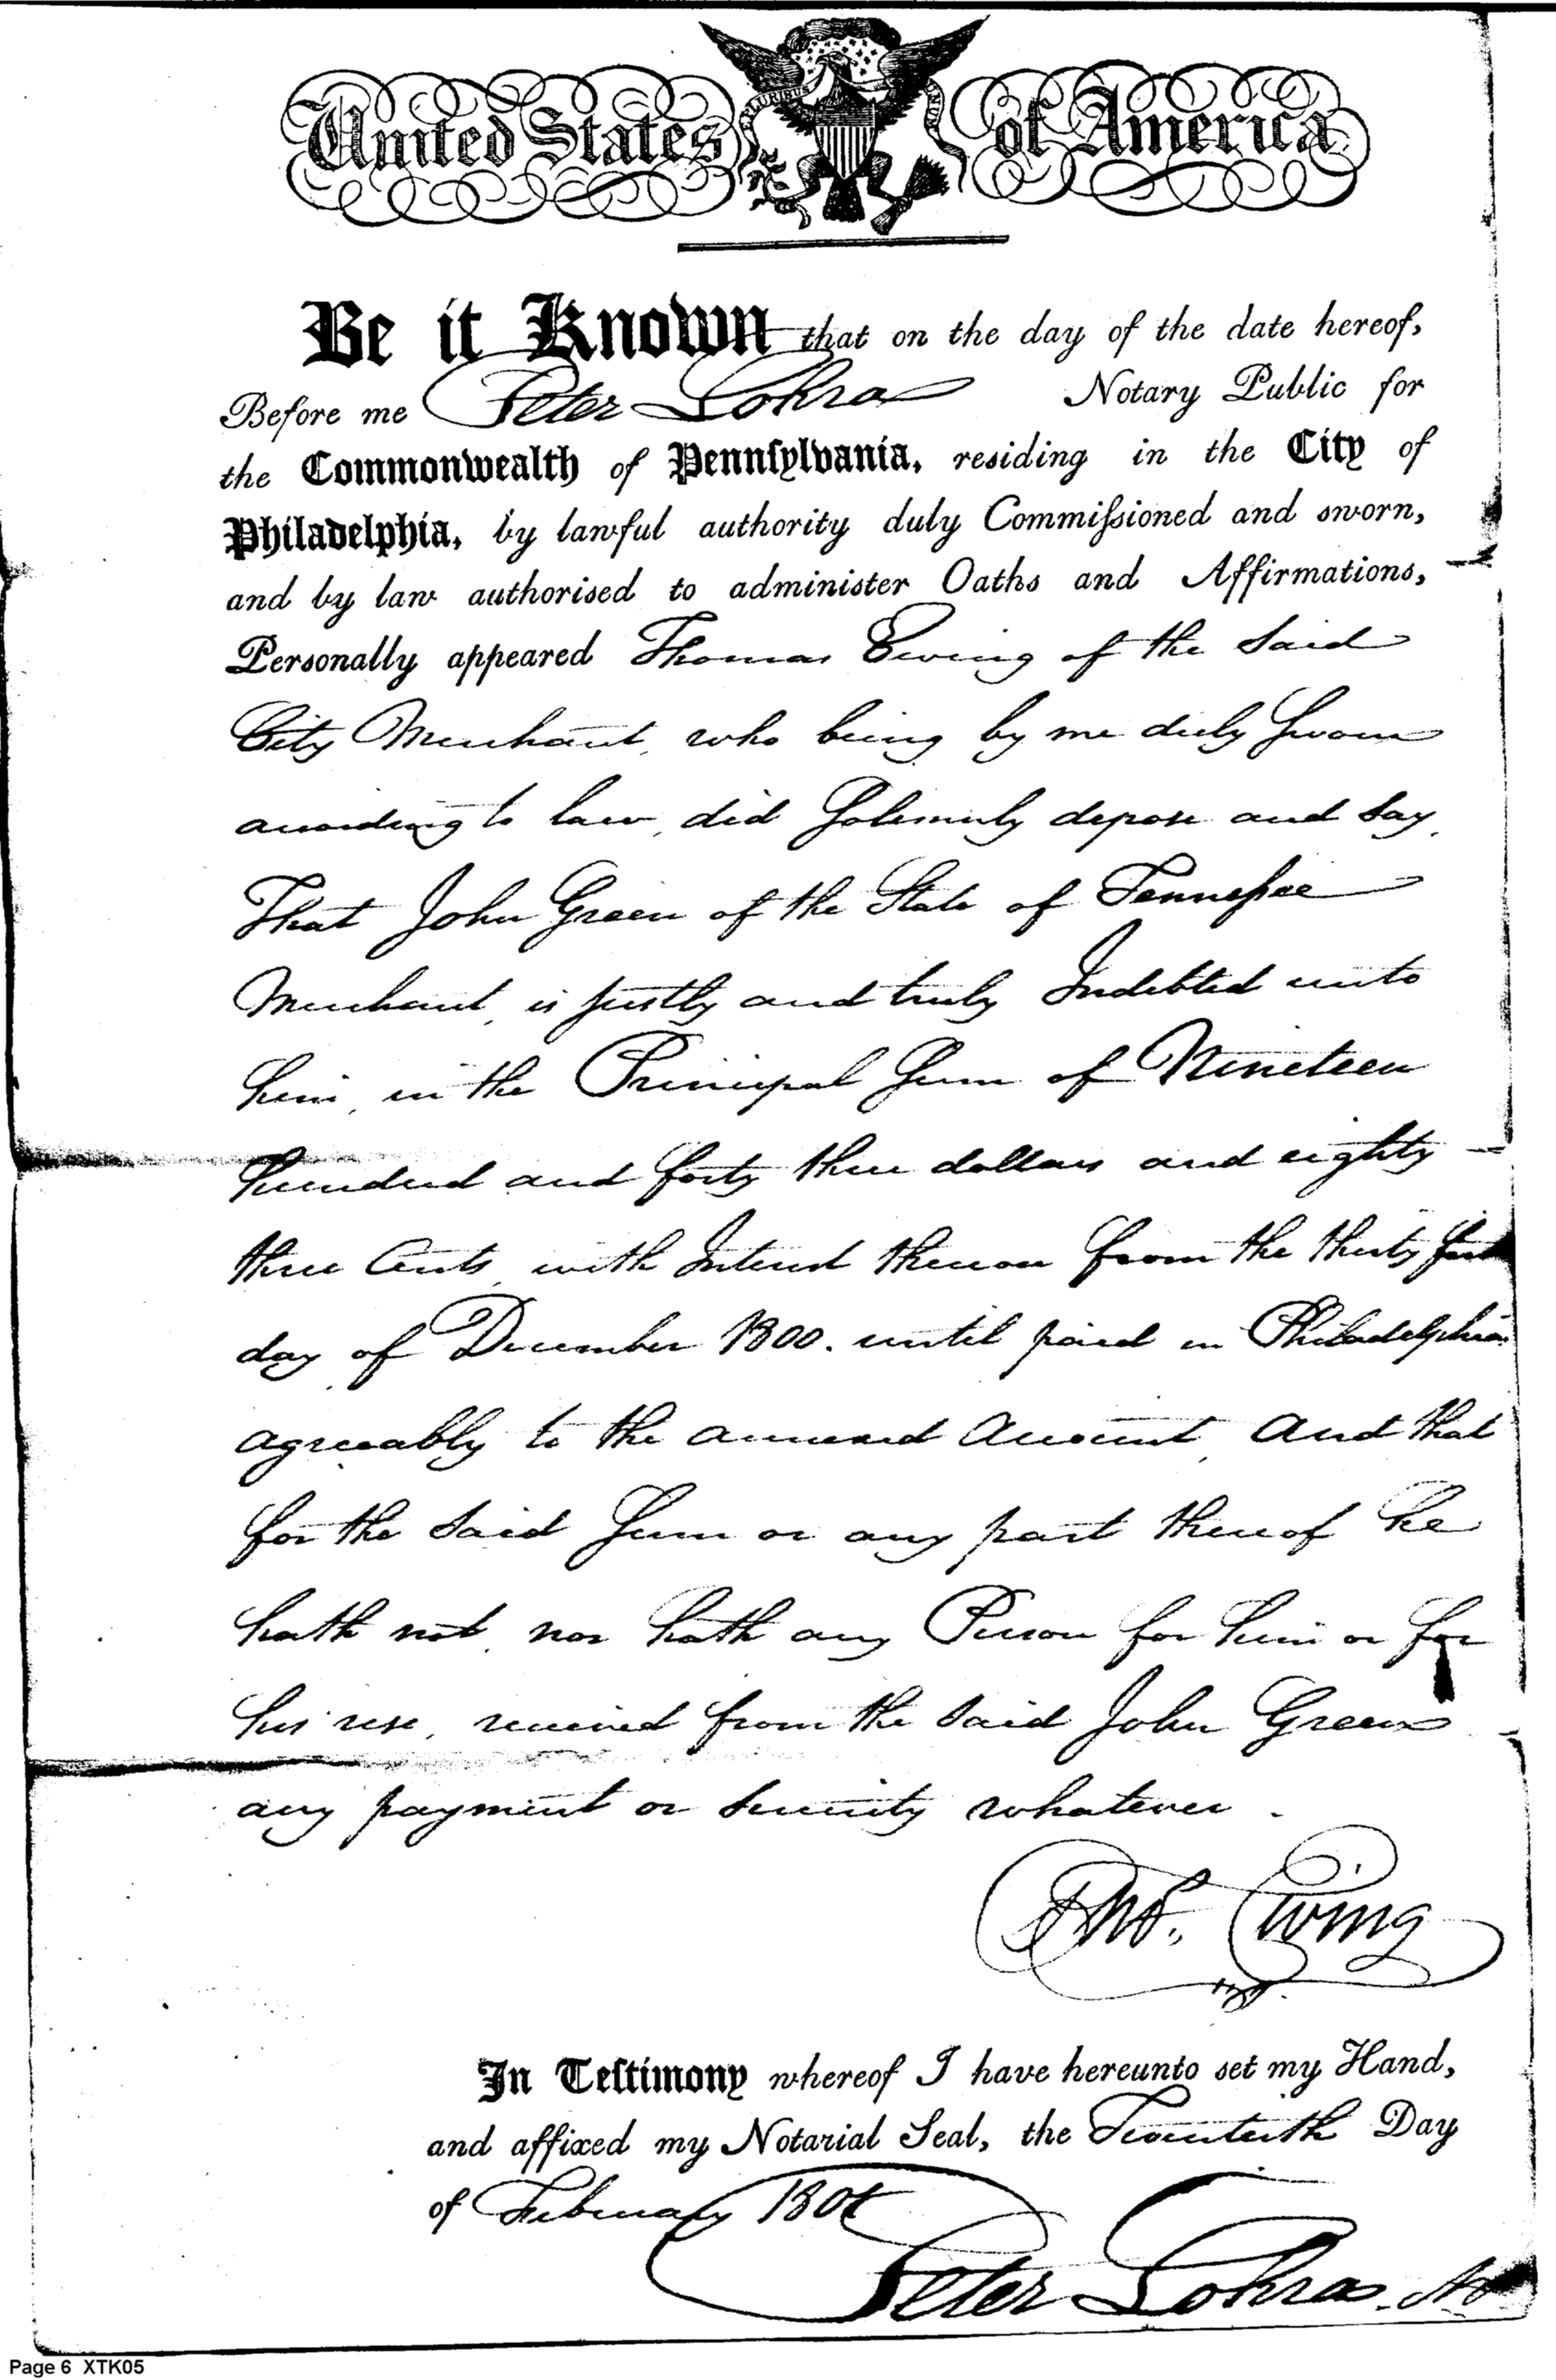 E PLURIBUS UNUM
United States of America
Be it Known that on the day of the date hereof,
Before me Peter Lohra Notary Public for
the Commonwealth of Pennſylvania, residing in the City of
Philadelphia, by lawful authority duly Commiſsioned and sworn,
and by law authorised to administer Oaths and Affirmations,
Personally appeared Thomas Ewing of the Said
City Merchant, who being by me duly Sworn
according to law, did Solemnly depose and Say,
That John Green of the State of Tenneſsee
Merchant, is justly and truly Indebted unto
him, in the Principal Sum of Nineteen
hundred and forty three dollars and eighty
three Cents, with Interest thereon from the thirty first
day of December 1800. until paid in Philadelphia
agreeably to the annexed Account, And that
for the Said Sum or any part thereof he
hath not, nor hath any Person for him or for
his use, received from the Said John Green
any payment or Security whatever.
Thos. Ewing
In Teſtimony whereof I have hereunto set my Hand,
and affixed my Notarial Seal, the Twentieth Day
of February
Peter Lohra
Page 6 XTK05